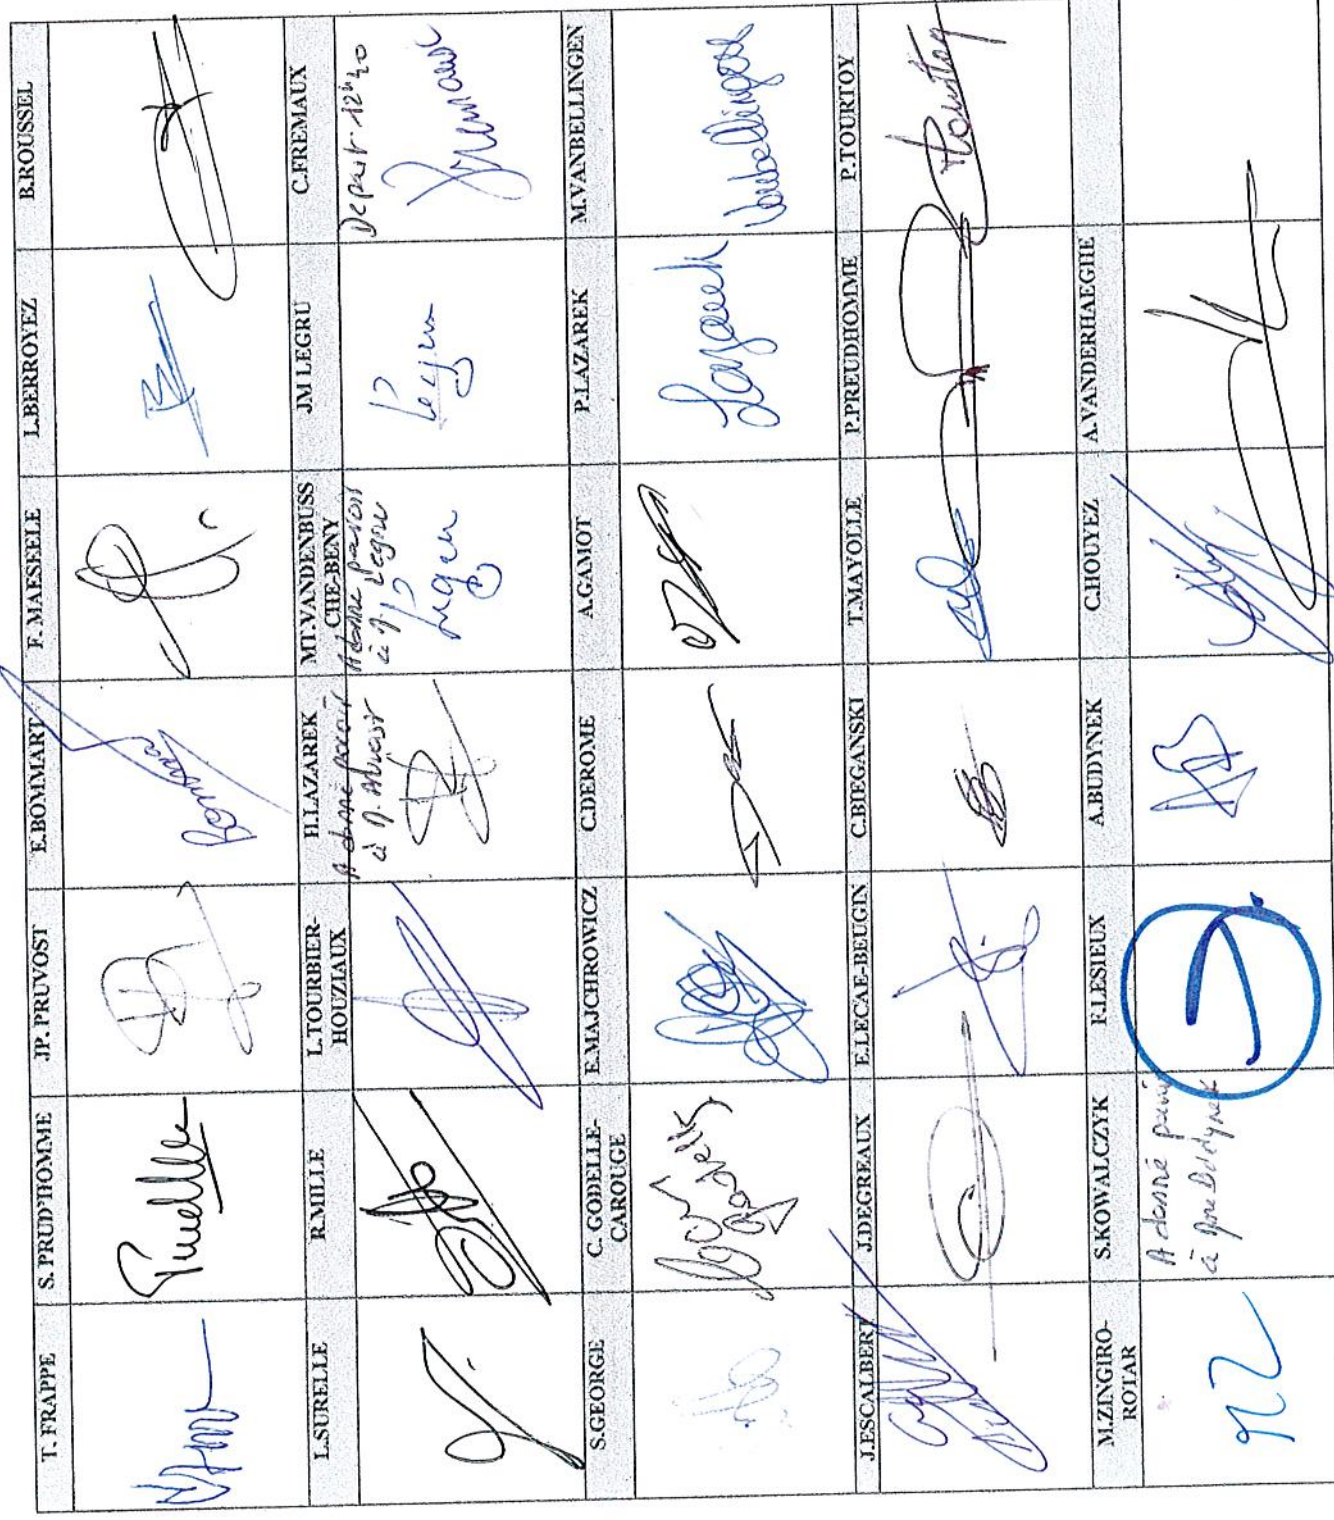 T. FRAPPE
S. PRUD'HOMME
JP. PRUVOST
E.BOMMART
F. MAESEELE
L.BERROYEZ
B.ROUSSEL
Bommart
L.SURELLE
R.MILLE
L.TOURBIER-
HOUZIAUX
H.LAZAREK
MT.VANDENBUSS
CHE-BENY
JM LEGRU
C.FREMAUX
A donné pouvoir
à
A donné pouvoir
à JM Legru
Legru
Legru
Départ 12h40
Fremaux
S.GEORGE
C. GODELLE-
CAROUGE
E.MAJCHROWICZ
C.DEROME
A.GAMOT
P.LAZAREK
M.VANBELLINGEN
Godelle
Lazarek
Vanbellingen
J.ESCALBERT
J.DEGREAUX
E.LECAE-BEUGIN
C.BIEGANSKI
T.MAYOLLE
P.PREUDHOMME
P.TOURTOY
Tourtoy
M.ZINGIRO-
ROTAR
S.KOWALCZYK
F.LESIEUX
A.BUDYNEK
C.HOUYEZ
A.VANDERHAEGHE
A donné pouvoir
à Mme Budynek